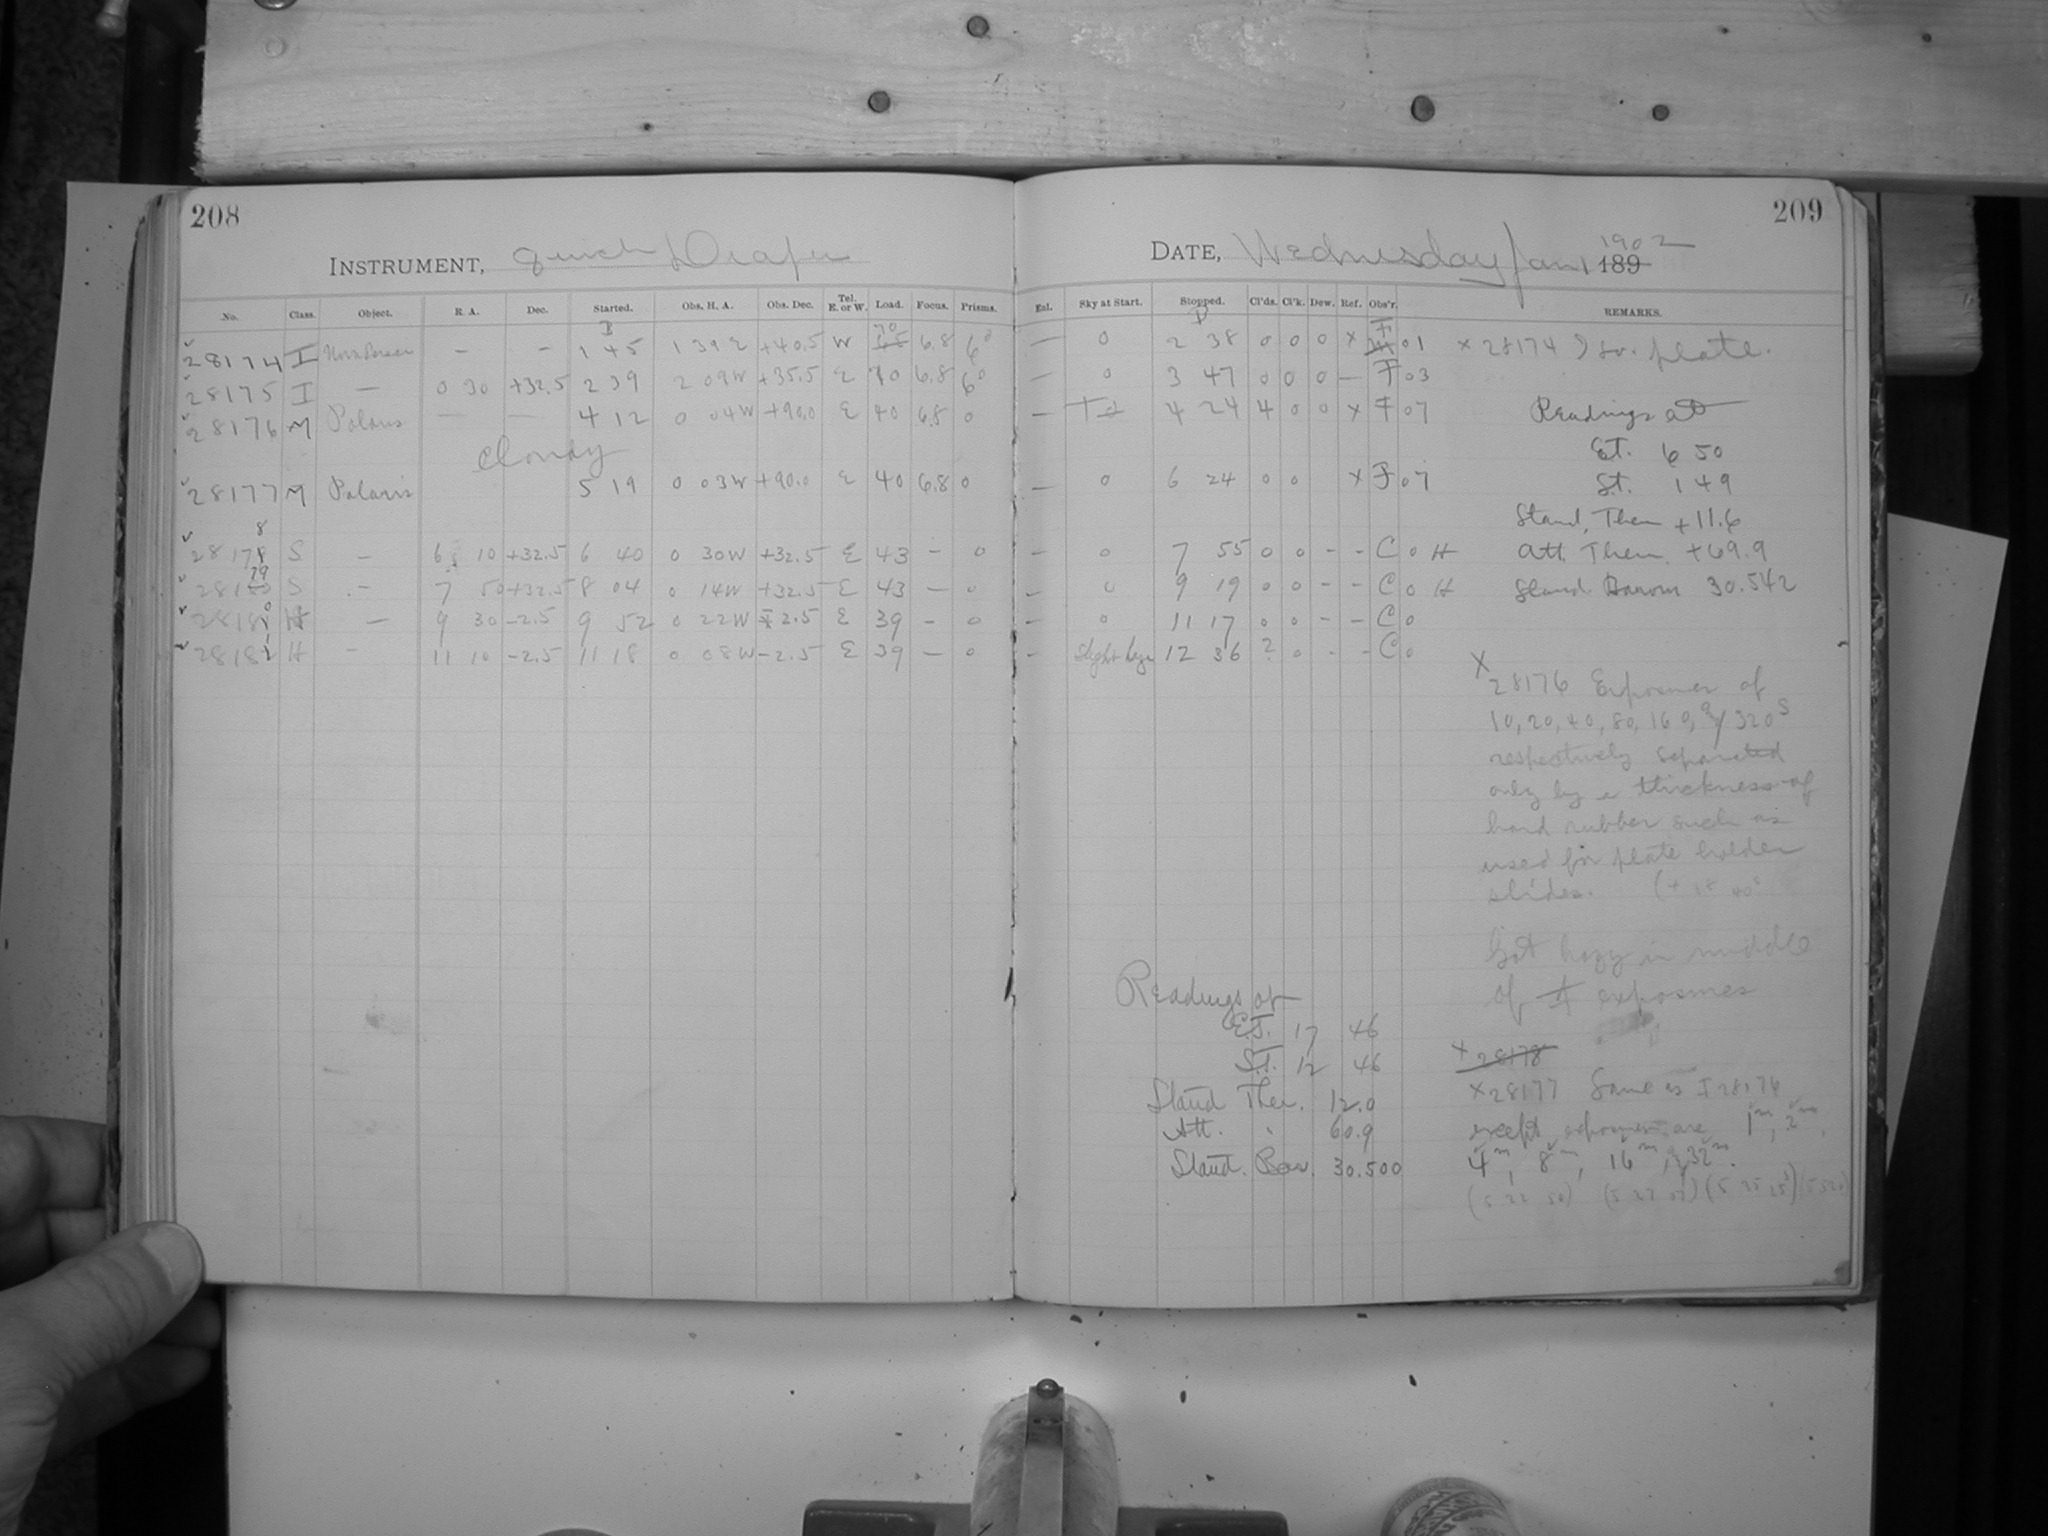 208
209
INSTRUMENT, 8 inch Draper
DATE, Wednesday Jan 1 1902 189
No. Class. Object. R. A. Dec. Started. Obs. H. A. Obs. Dec. Tel. E. or W. Load. Focus. Prisms. Enl. Sky at Start. Stopped. Cl'ds. Cl'k. Dew. Ref. Obs'r. REMARKS.
28174 I Nova Persei – – 1 45 1 39 E +40.5 W 70 6.8 6° – 0 2 38 0 0 0 x F 01 x 28174 Iso. plate.
28175 I – 0 30 +32.5 2 39 2 09W +35.5 E 70 6.8 6° – 0 3 47 0 0 0 – F 03
28176 M Polaris – – 4 12 0 04W +90.0 E 40 6.8 0 – 4 24 4 0 0 x F 07 Readings at
cloudy ET. 6 50
28177 M Polaris 5 19 0 03W +90.0 E 40 6.8 0 – 0 6 24 0 0 x F 07 S.t. 1 49
Stand, Ther +11.6
28178 S – 6 10 +32.5 6 40 0 30W +32.5 E 43 – 0 – 0 7 55 0 0 – – C 0 H Att. Ther. +69.9
28179 S – 7 50 +32.5 8 04 0 14W +32.5 E 43 – 0 – 0 9 19 0 0 – – C 0 H Stand Barom 30.542
28180 H – 9 30 –2.5 9 52 0 22W –2.5 E 39 – 0 – 0 11 17 0 0 – – C 0
28181 H – 11 10 –2.5 11 18 0 08W –2.5 E 39 – 0 – Slight haze 12 36 2 0 – – C 0
x 28176 Exposures of
10, 20, 40, 80, 160, & 320s
respectively separated
only by a thickness of
hard rubber such as
used for plate holder
slides.
Got hazy in middle
of exposures
Readings at
E.T. 17 46
S.T. 12 46
Stand Ther. 12.0
Att. " 60.9
Stand. Bar. 30.500
x 28178
x 28177 Same as I 28176
except exposures are 1m, 2m,
4m, 8m, 16m, & 32m.